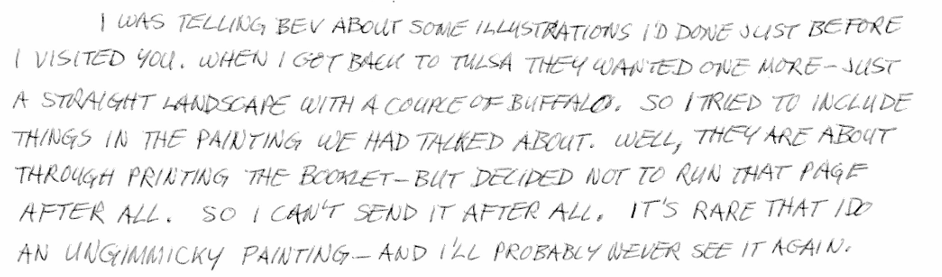 I WAS TELLING BEV ABOUT SOME ILLUSTRATIONS I'D DONE JUST BEFORE
I VISITED YOU. WHEN I GOT BACK TO TULSA THEY WANTED ONE MORE – JUST
A STRAIGHT LANDSCAPE WITH A COUPLE OF BUFFALO. SO I TRIED TO INCLUDE
THINGS IN THE PAINTING WE HAD TALKED ABOUT. WELL, THEY ARE ABOUT
THROUGH PRINTING THE BOOKLET – BUT DECIDED NOT TO RUN THAT PAGE
AFTER ALL. SO I CAN'T SEND IT AFTER ALL. IT'S RARE THAT I DO
AN UNGIMMICKY PAINTING – AND I'LL PROBABLY NEVER SEE IT AGAIN.